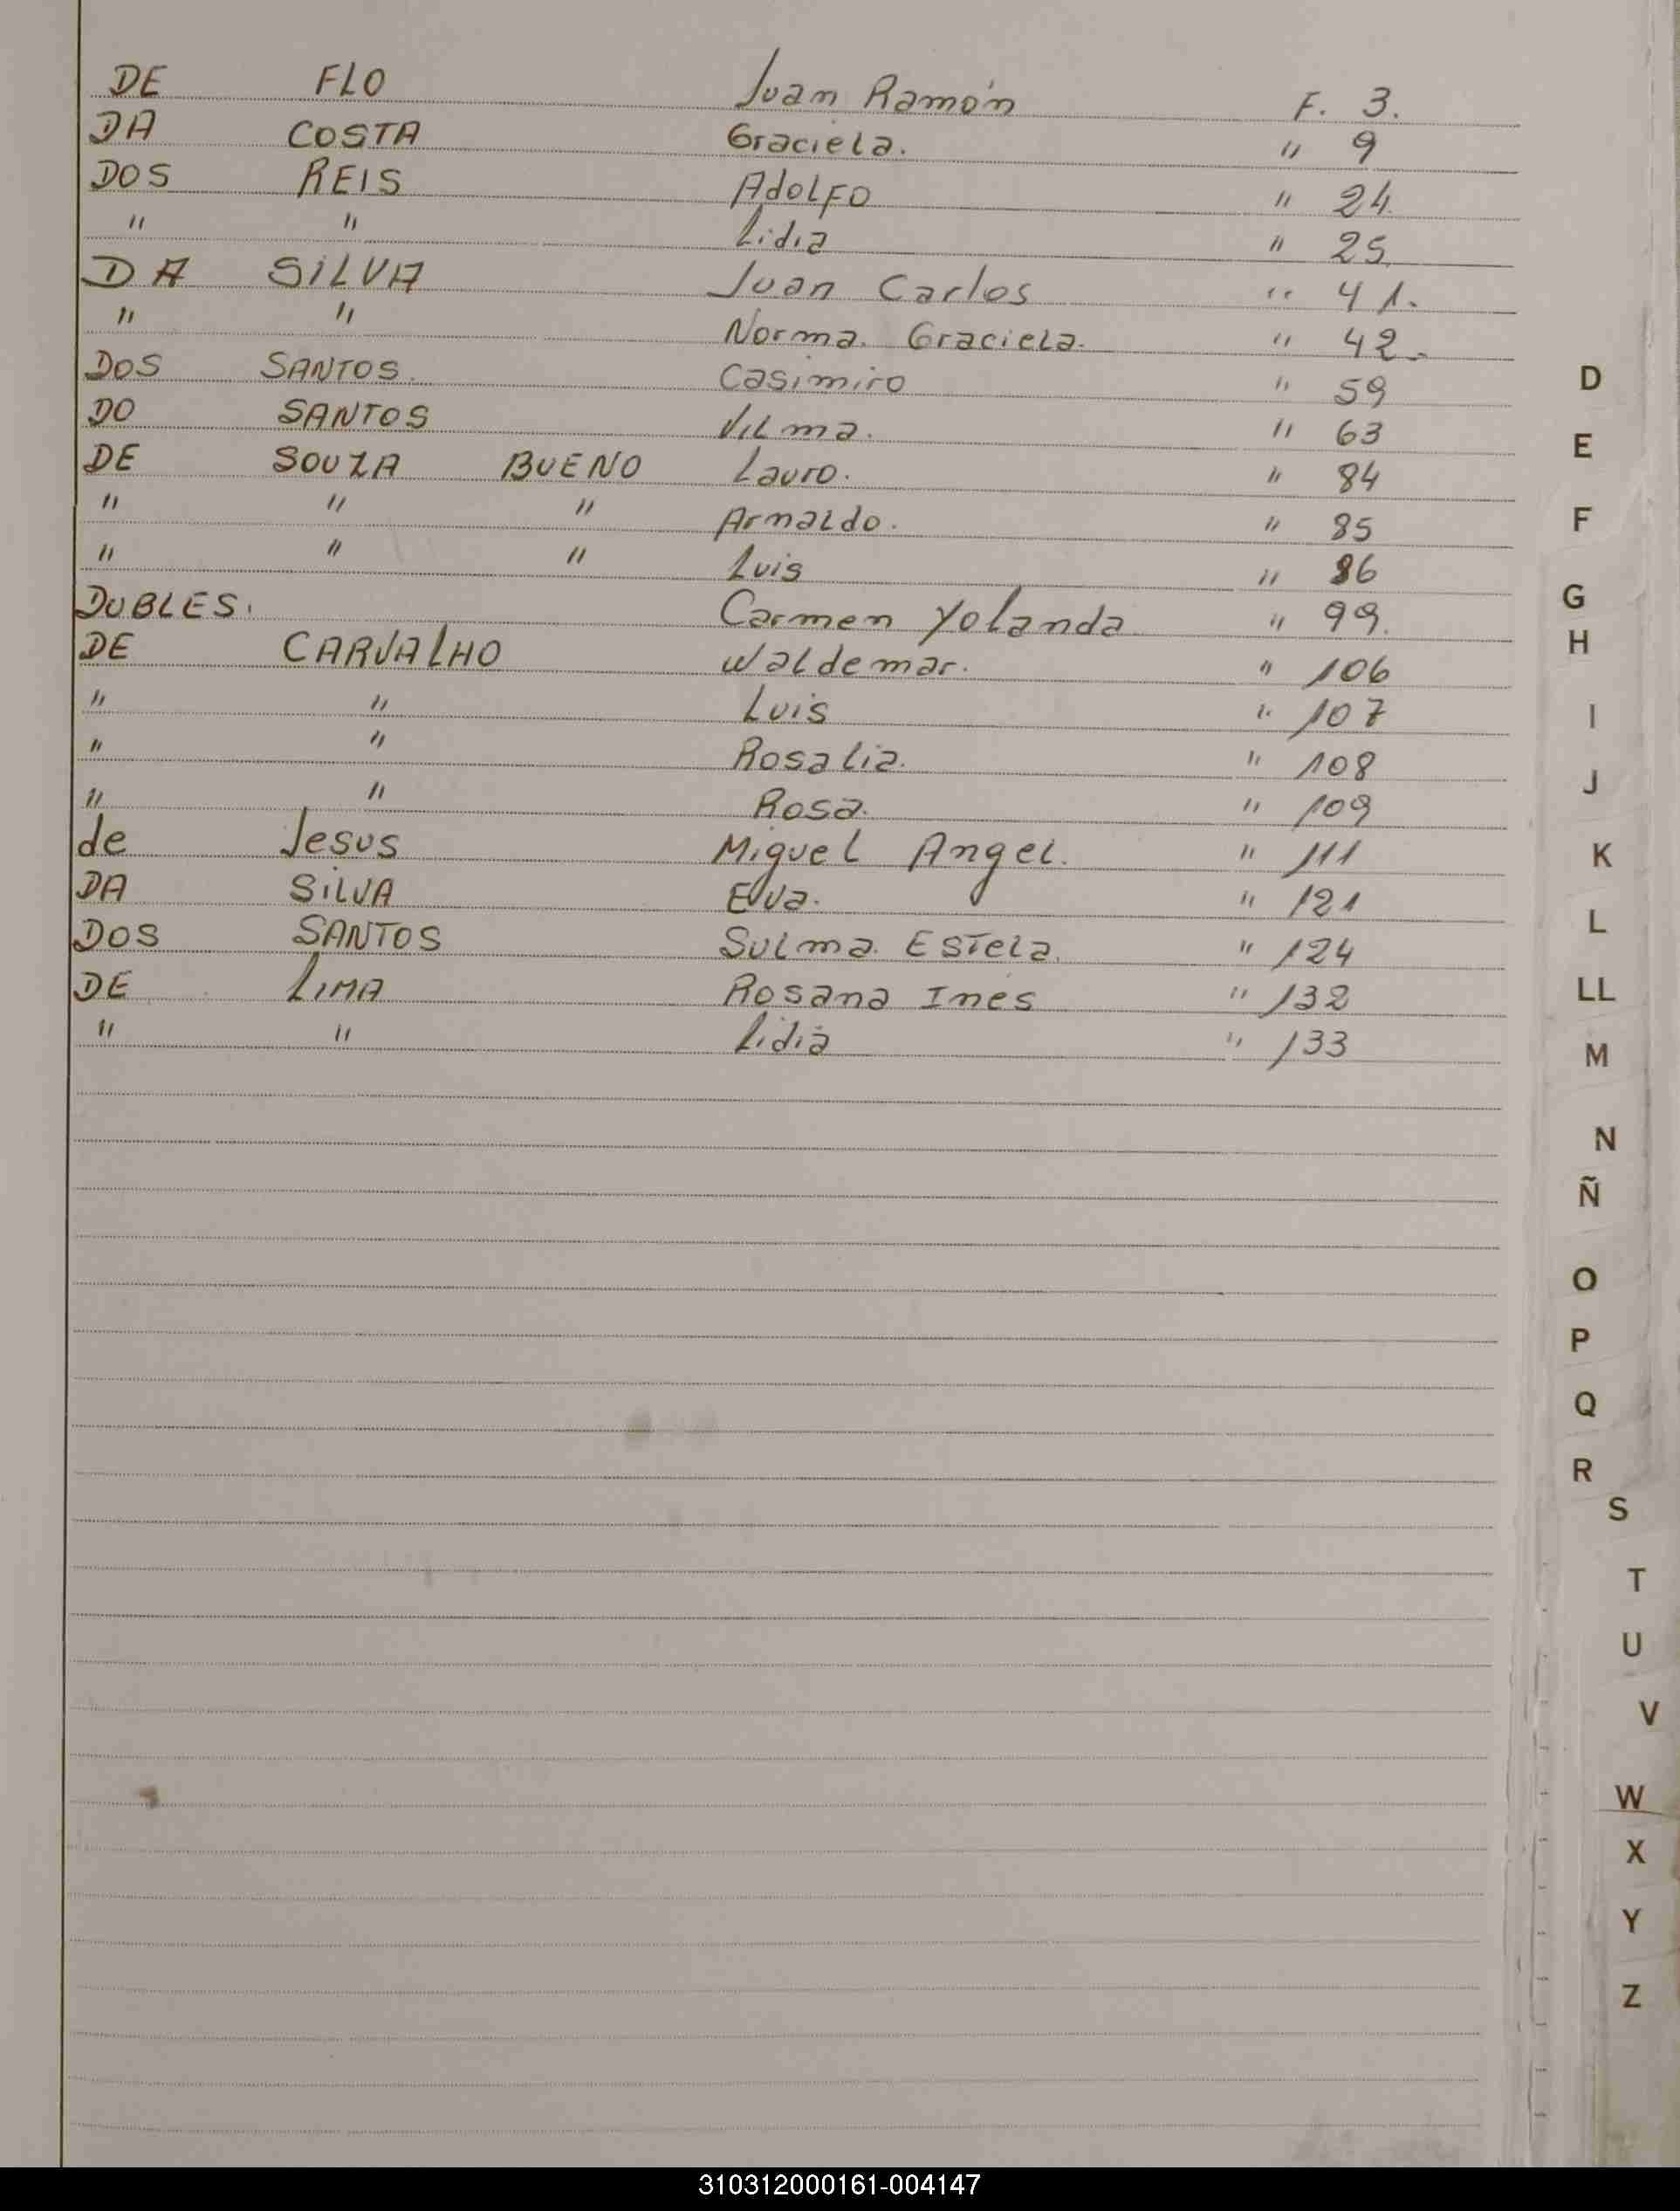 DE FLO Juan Ramón F. 3.
DA COSTA Graciela. " 9
DOS REIS Adolfo " 24
" " Lidia " 25
DA SILVA Juan Carlos " 41.
" " Norma. Graciela. " 42.
DOS SANTOS. Casimiro " 59
DO SANTOS Vilma. " 63
DE SOUZA BUENO Lauro. " 84
" " " Arnaldo. " 85
" " " Luis " 86
DUBLES. Carmen Yolanda " 99.
DE CARVALHO Waldemar. " 106
" " Luis " 107
" " Rosalia. " 108
" " Rosa. " 109
de Jesus Miguel Angel. " 111
DA SILVA Elva. " 121
DOS SANTOS Sulma. Estela. " 124
DE LIMA Rosana Ines " 132
" " Lidia " 133
D
E
F
G
H
I
J
K
L
LL
M
N
Ñ
O
P
Q
R
S
T
U
V
W
X
Y
Z
310312000161-004147